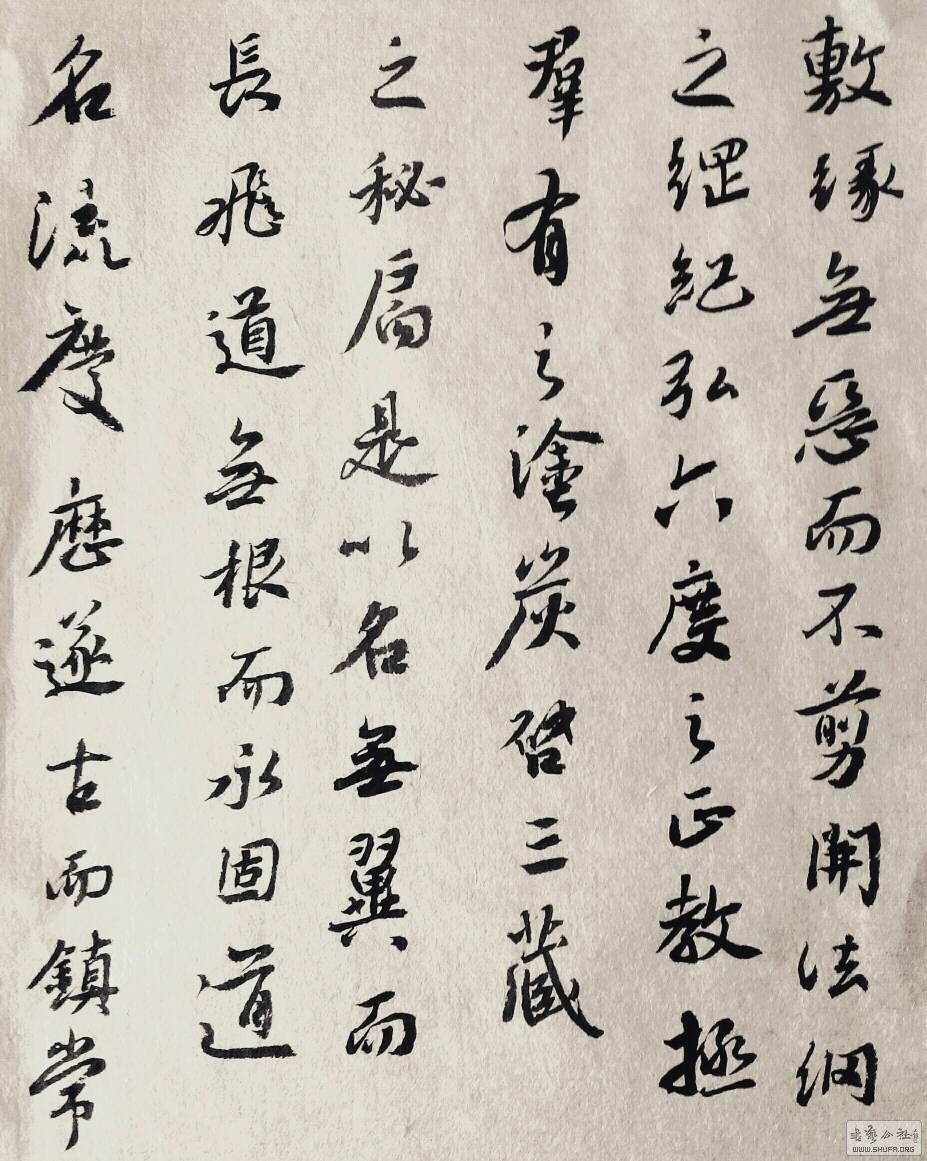 敷緣無惡而不剪開法網
之綱紀弘六度之正教拯
羣有之塗炭啓三藏
之秘扃是以名無翼而
長飛道無根而永固道
名流慶歷遂古而鎮常
書藝公社
WWW.SHUFA.ORG